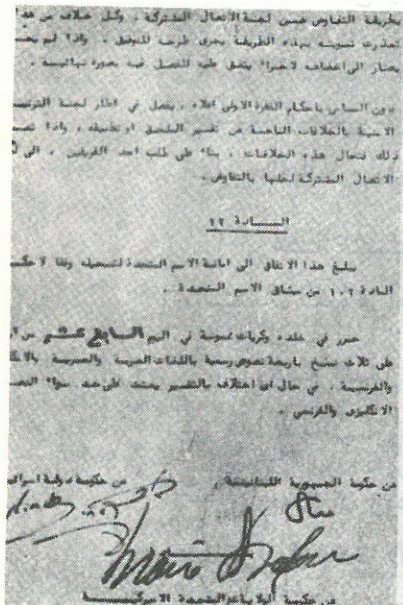 بطريقة التفاوض ضمن لجنة الاتصال المشتركة . وكل خلاف من هذا
تعذرت تسويته بهذه الطريقة يجرى طرحه للتوفيق . واذا لم
يصار الى اعتماد لاجراء يتفق عليه للفصل فيه بصورة نهائية .
دون المساس باحكام الفقرة الاولى اعلاه ، يفصل في اطار لجنة
الامنية بالخلافات الناجمة عن تفسير الملحق او تطبيقه ، واذا
ذلك فتحال هذه الخلافات ، بناء على طلب احد الفريقين ، الى
الاتصال المشتركة لحلها بالتفاوض .
المادة ١٢
يبلغ هذا الاتفاق الى امانة الامم المتحدة لتسجيله وفقا لاحك
المادة ١٠٢ من ميثاق الامم المتحدة .
حرر في خلده وكريات شمونة في اليوم السابع عشر من
على ثلاث نسخ باربعة نصوص رسمية باللغات العربية والعبرية والانك
والفرنسية . في حال اى اختلاف بالتفسير يعتمد على حد سواء النص
الانكليزى والفرنسي .
عن حكومة الجمهورية اللبنانية ، عن حكومة دولة اسرائي
عن حكومة الولايات المتحدة الاميركية